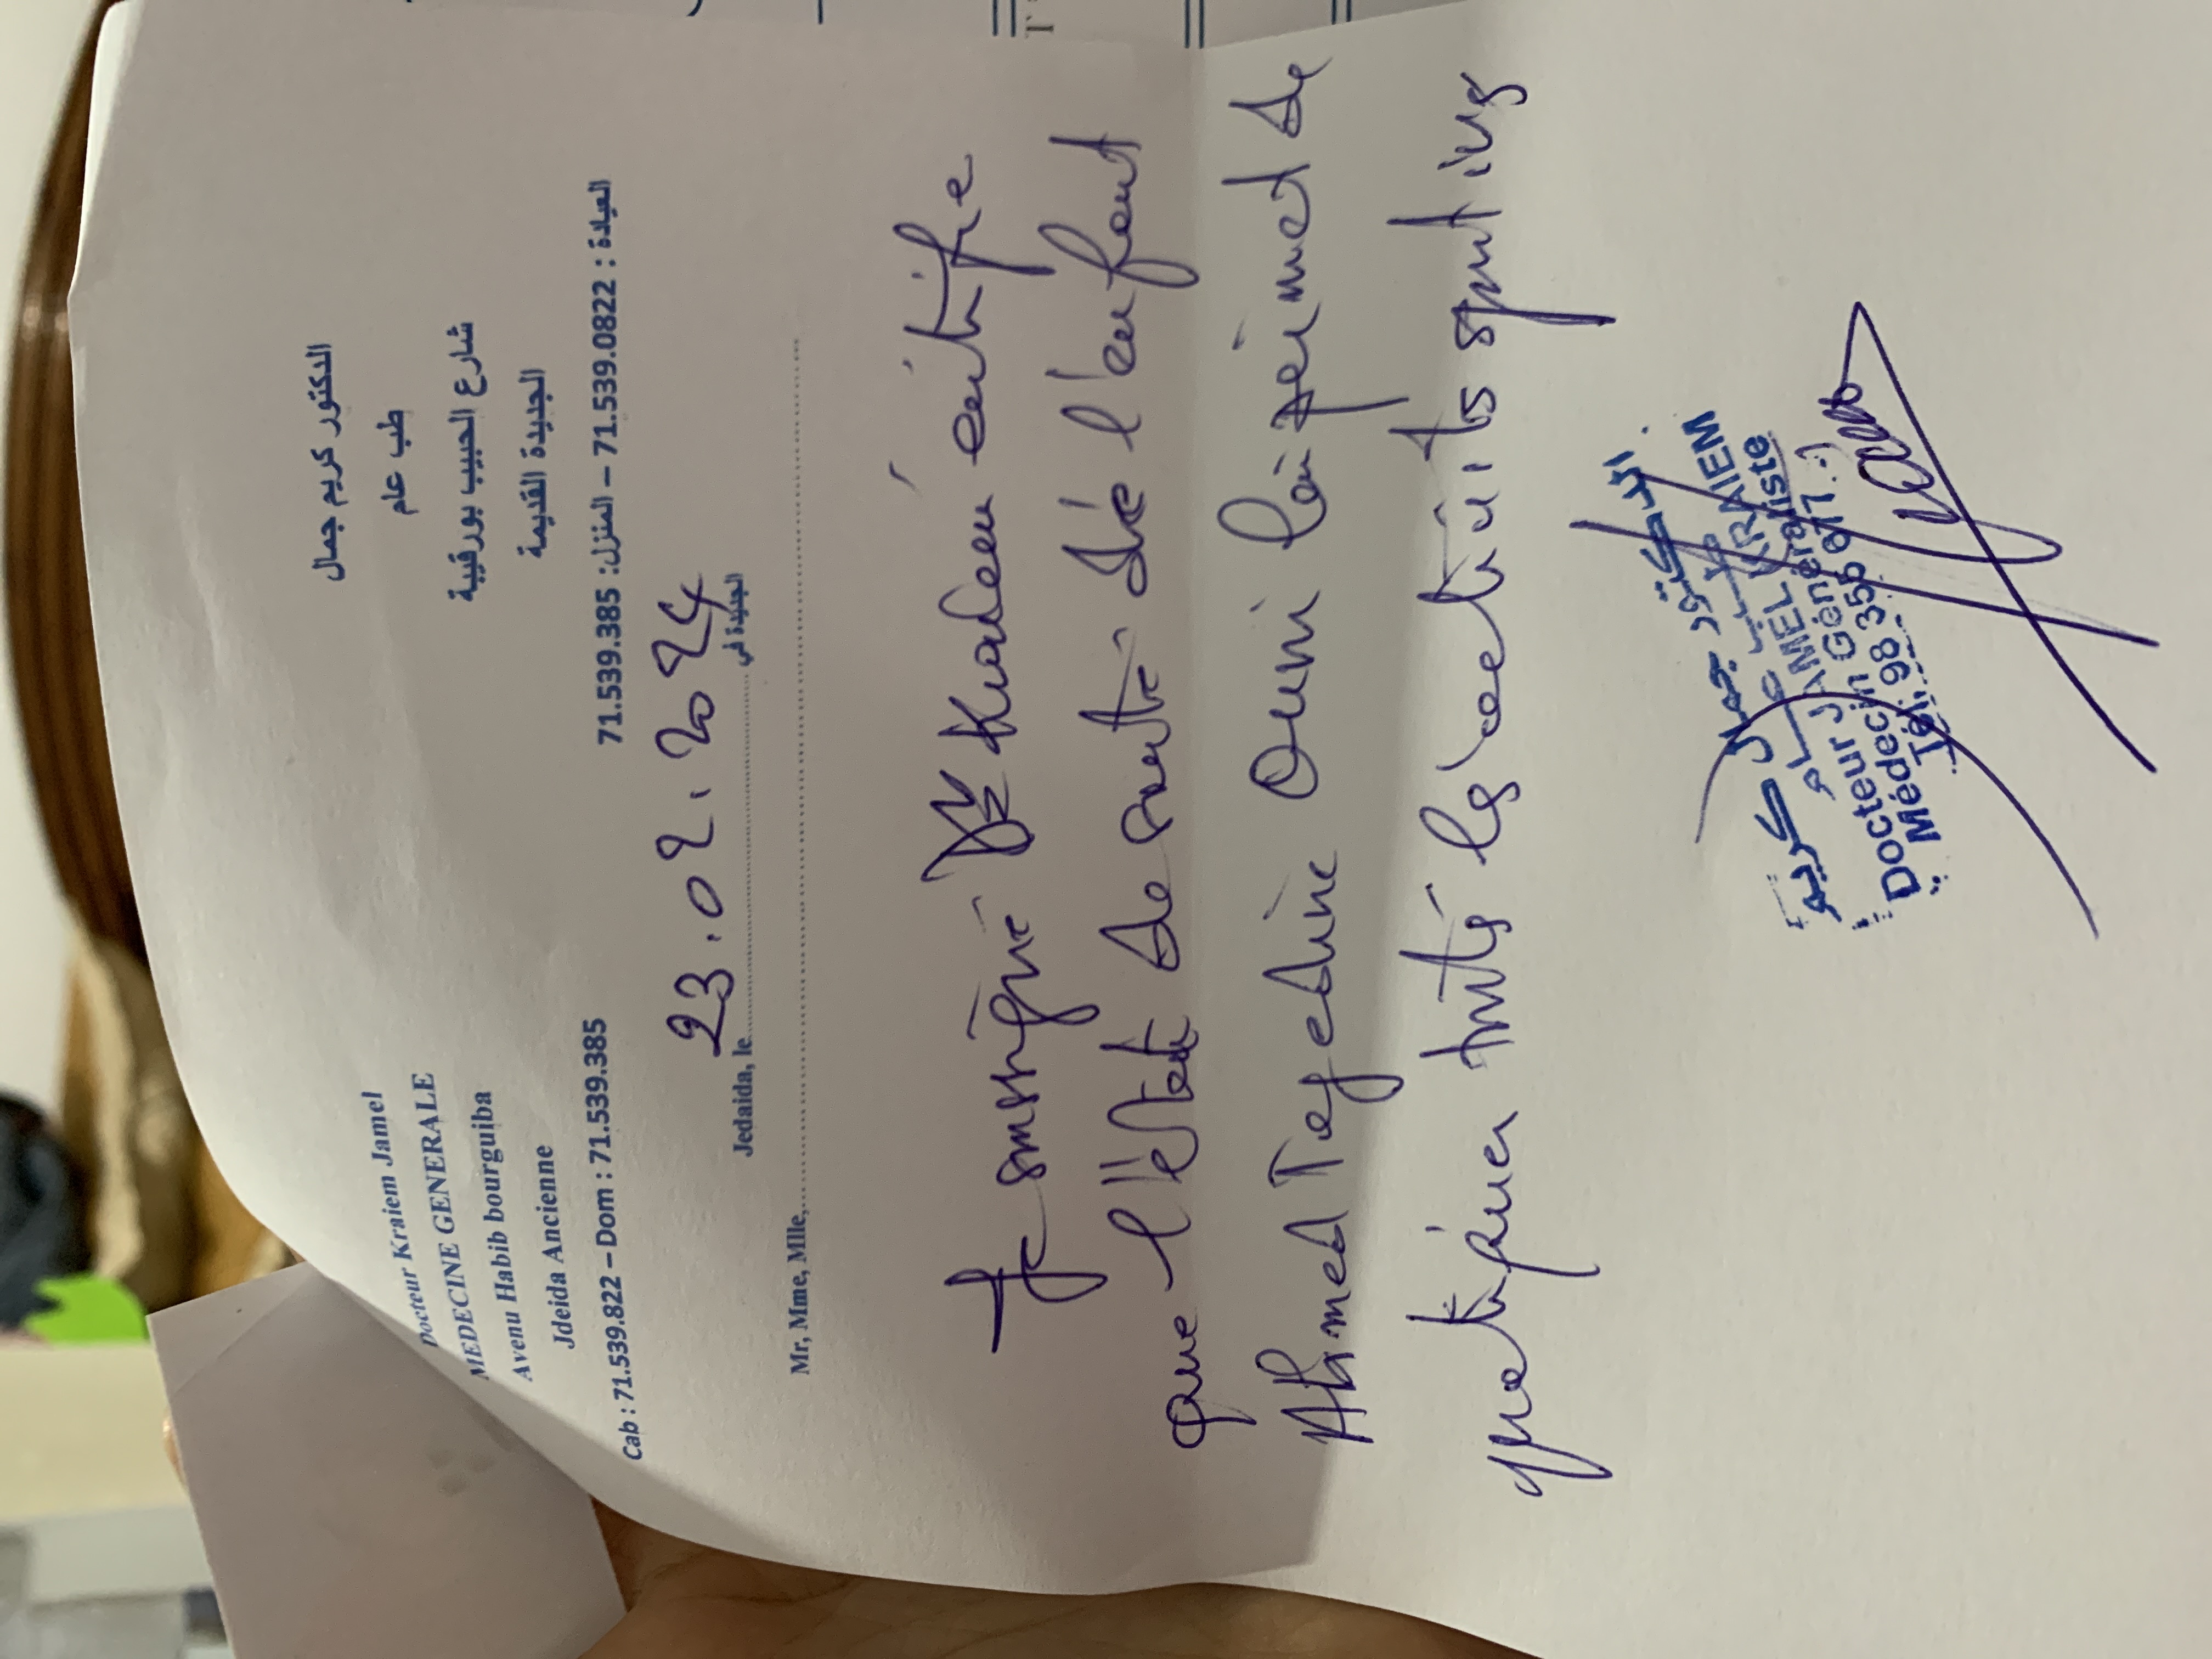 Docteur Kraiem Jamel
MEDECINE GENERALE
Avenu Habib bourguiba
Jdeida Ancienne
Cab : 71.539.822 – Dom : 71.539.385
الدكتور كريم جمال
طب عام
شارع الحبيب بورقيبة
الجديدة القديمة
العيادة : 71.539.0822 – المنزل: 71.539.385
Jedaida, le 23.02.2024 الجديدة في
Mr, Mme, Mlle,
Je soussigné Dr Kraiem certifie
que l'état de santé de l'enfant
Ahmed Tajeddine Ouni lui permet de
pratiquer toutes les activités sportives
الدكتور جمال كريم
طب عام
Docteur JAMEL KRAIEM
Médecin Généraliste
Tél: 98 356 617